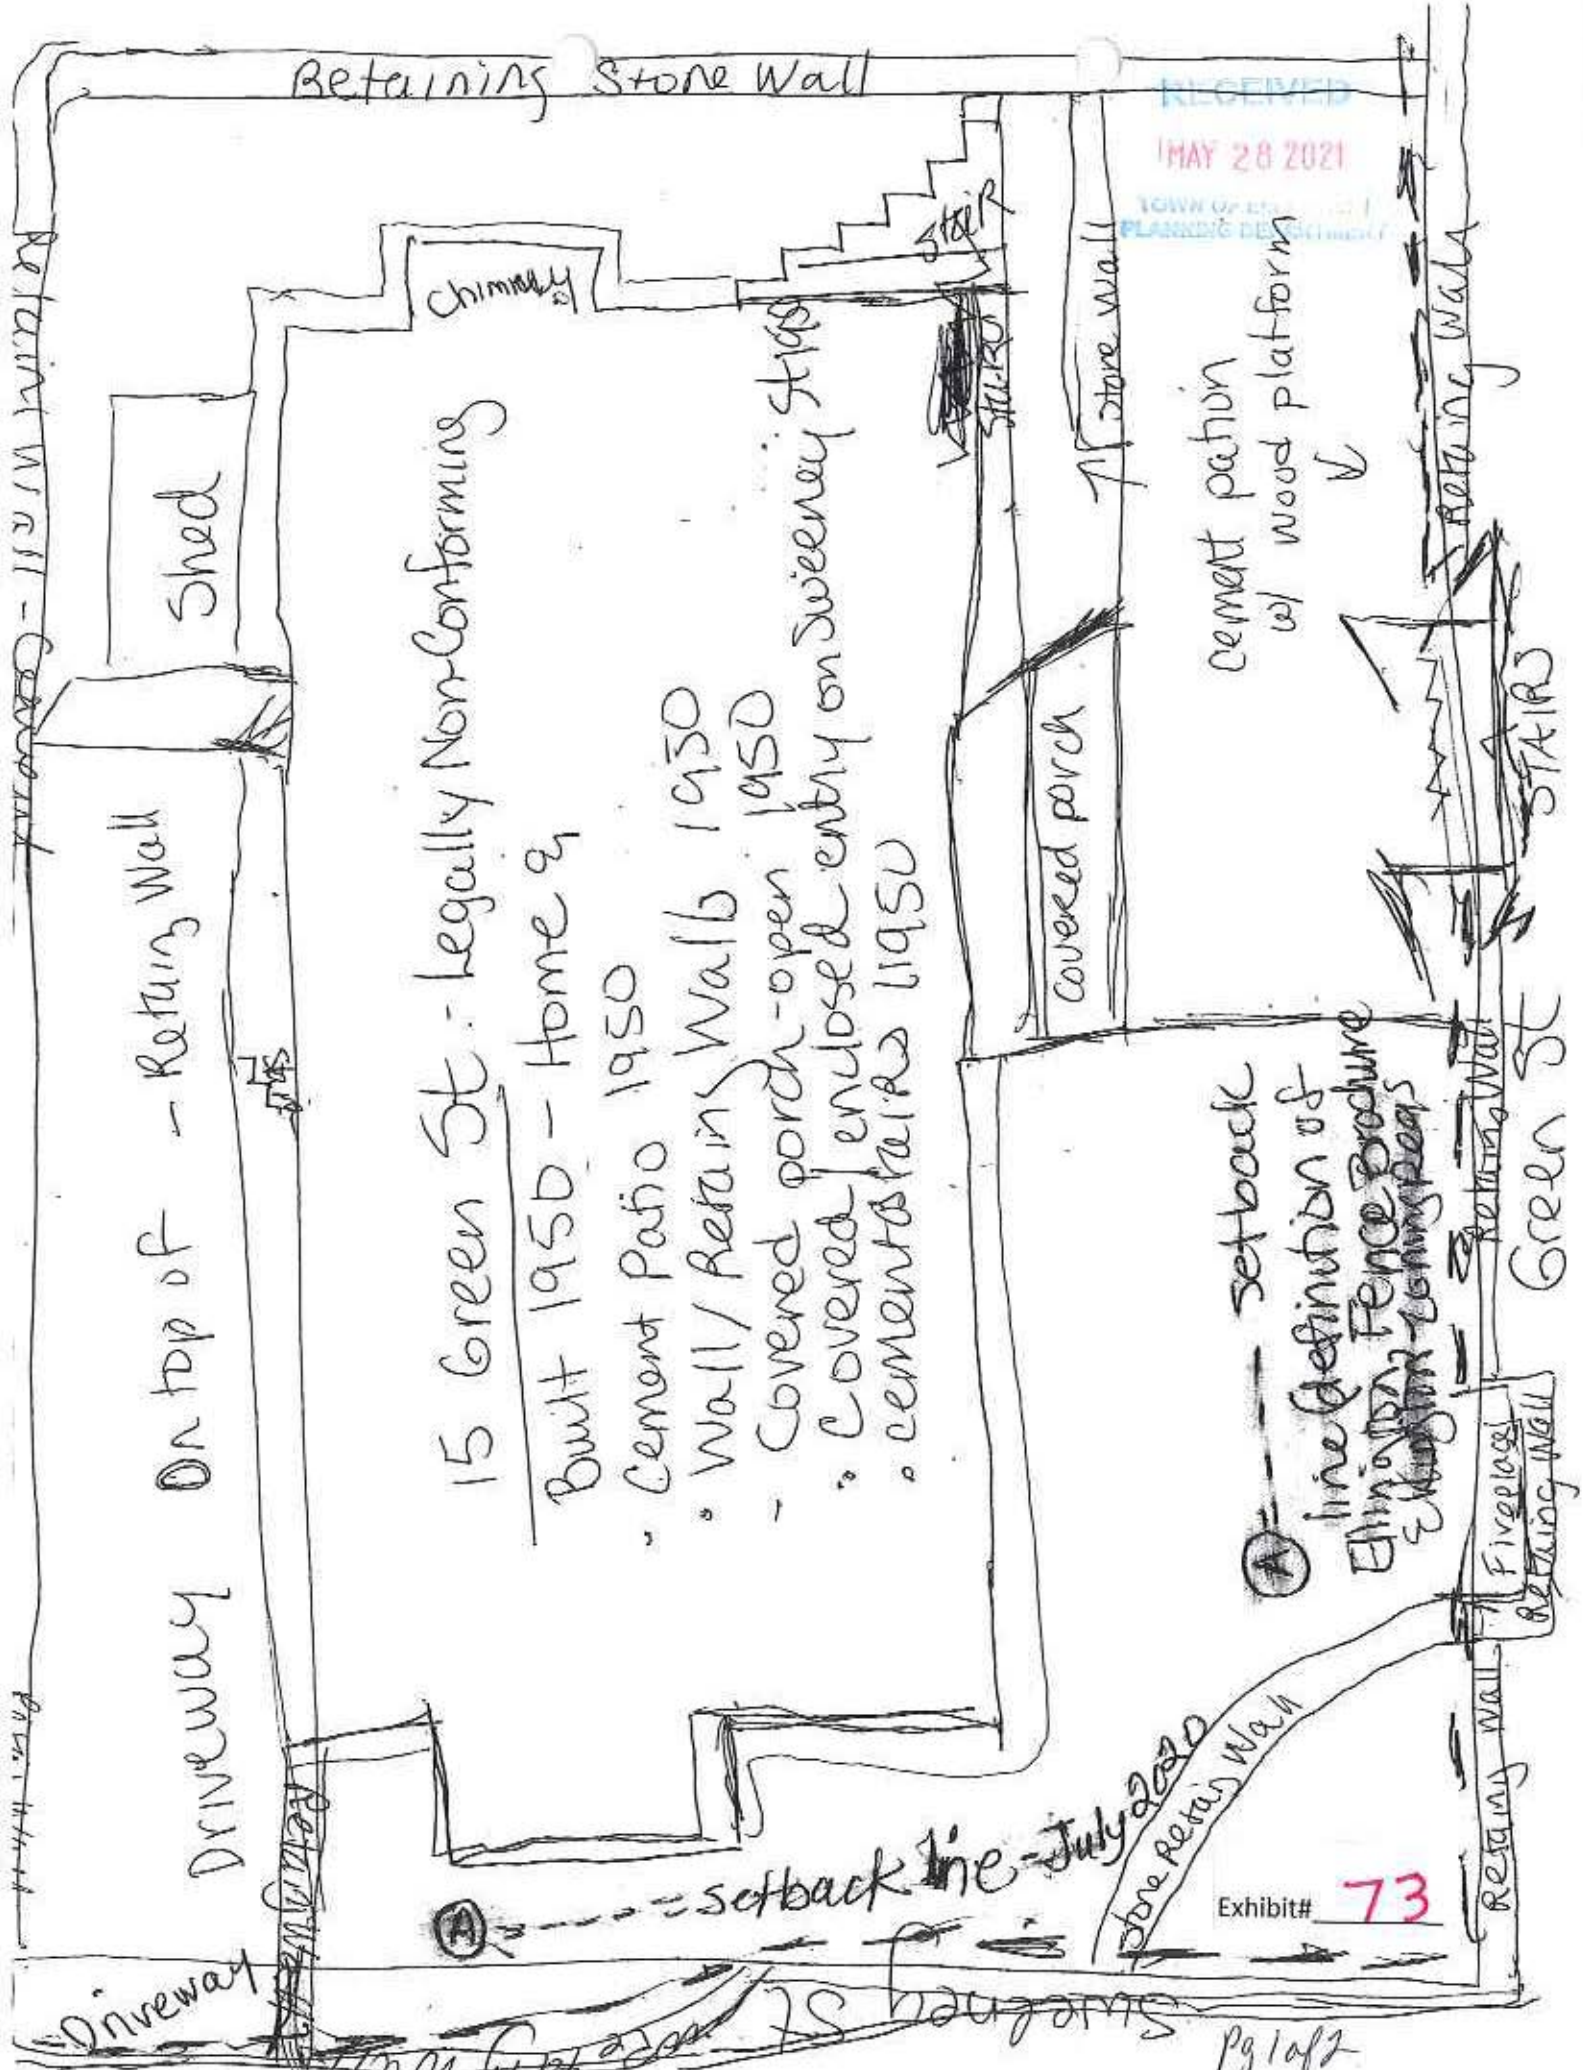 Retaining Stone Wall
RECEIVED
MAY 28 2021
TOWN OF
PLANNING DEPARTMENT
Retain Wall - Cement
Shed
Chimney
Stair
Stairs
Stone wall
cement pation
w/ wood platform
Retaing Wall
STAIRS
covered porch
Driveway On top of - Retaing Wall
15 Green St. - Legally Non-Conforming
Built 1950 - Home &
Cement Patio 1950
Wall / Retaing Walls 1930
- Covered porch-open 1950
Covered / enclosed entry on Sweeney St 1950
cement stairs 1950
A ---- setback
line definition of
Ellington Fence Brochure
Ellington zoning regs
Retaing Wall
Green St
Fireplace
Retaing Wall
Retaing Wall
Stone Retaig Wall
A ---- setback line - July 2020
Retaing Wall
Driveway
Sweeney St
Exhibit# 73
Pg 1 of 2